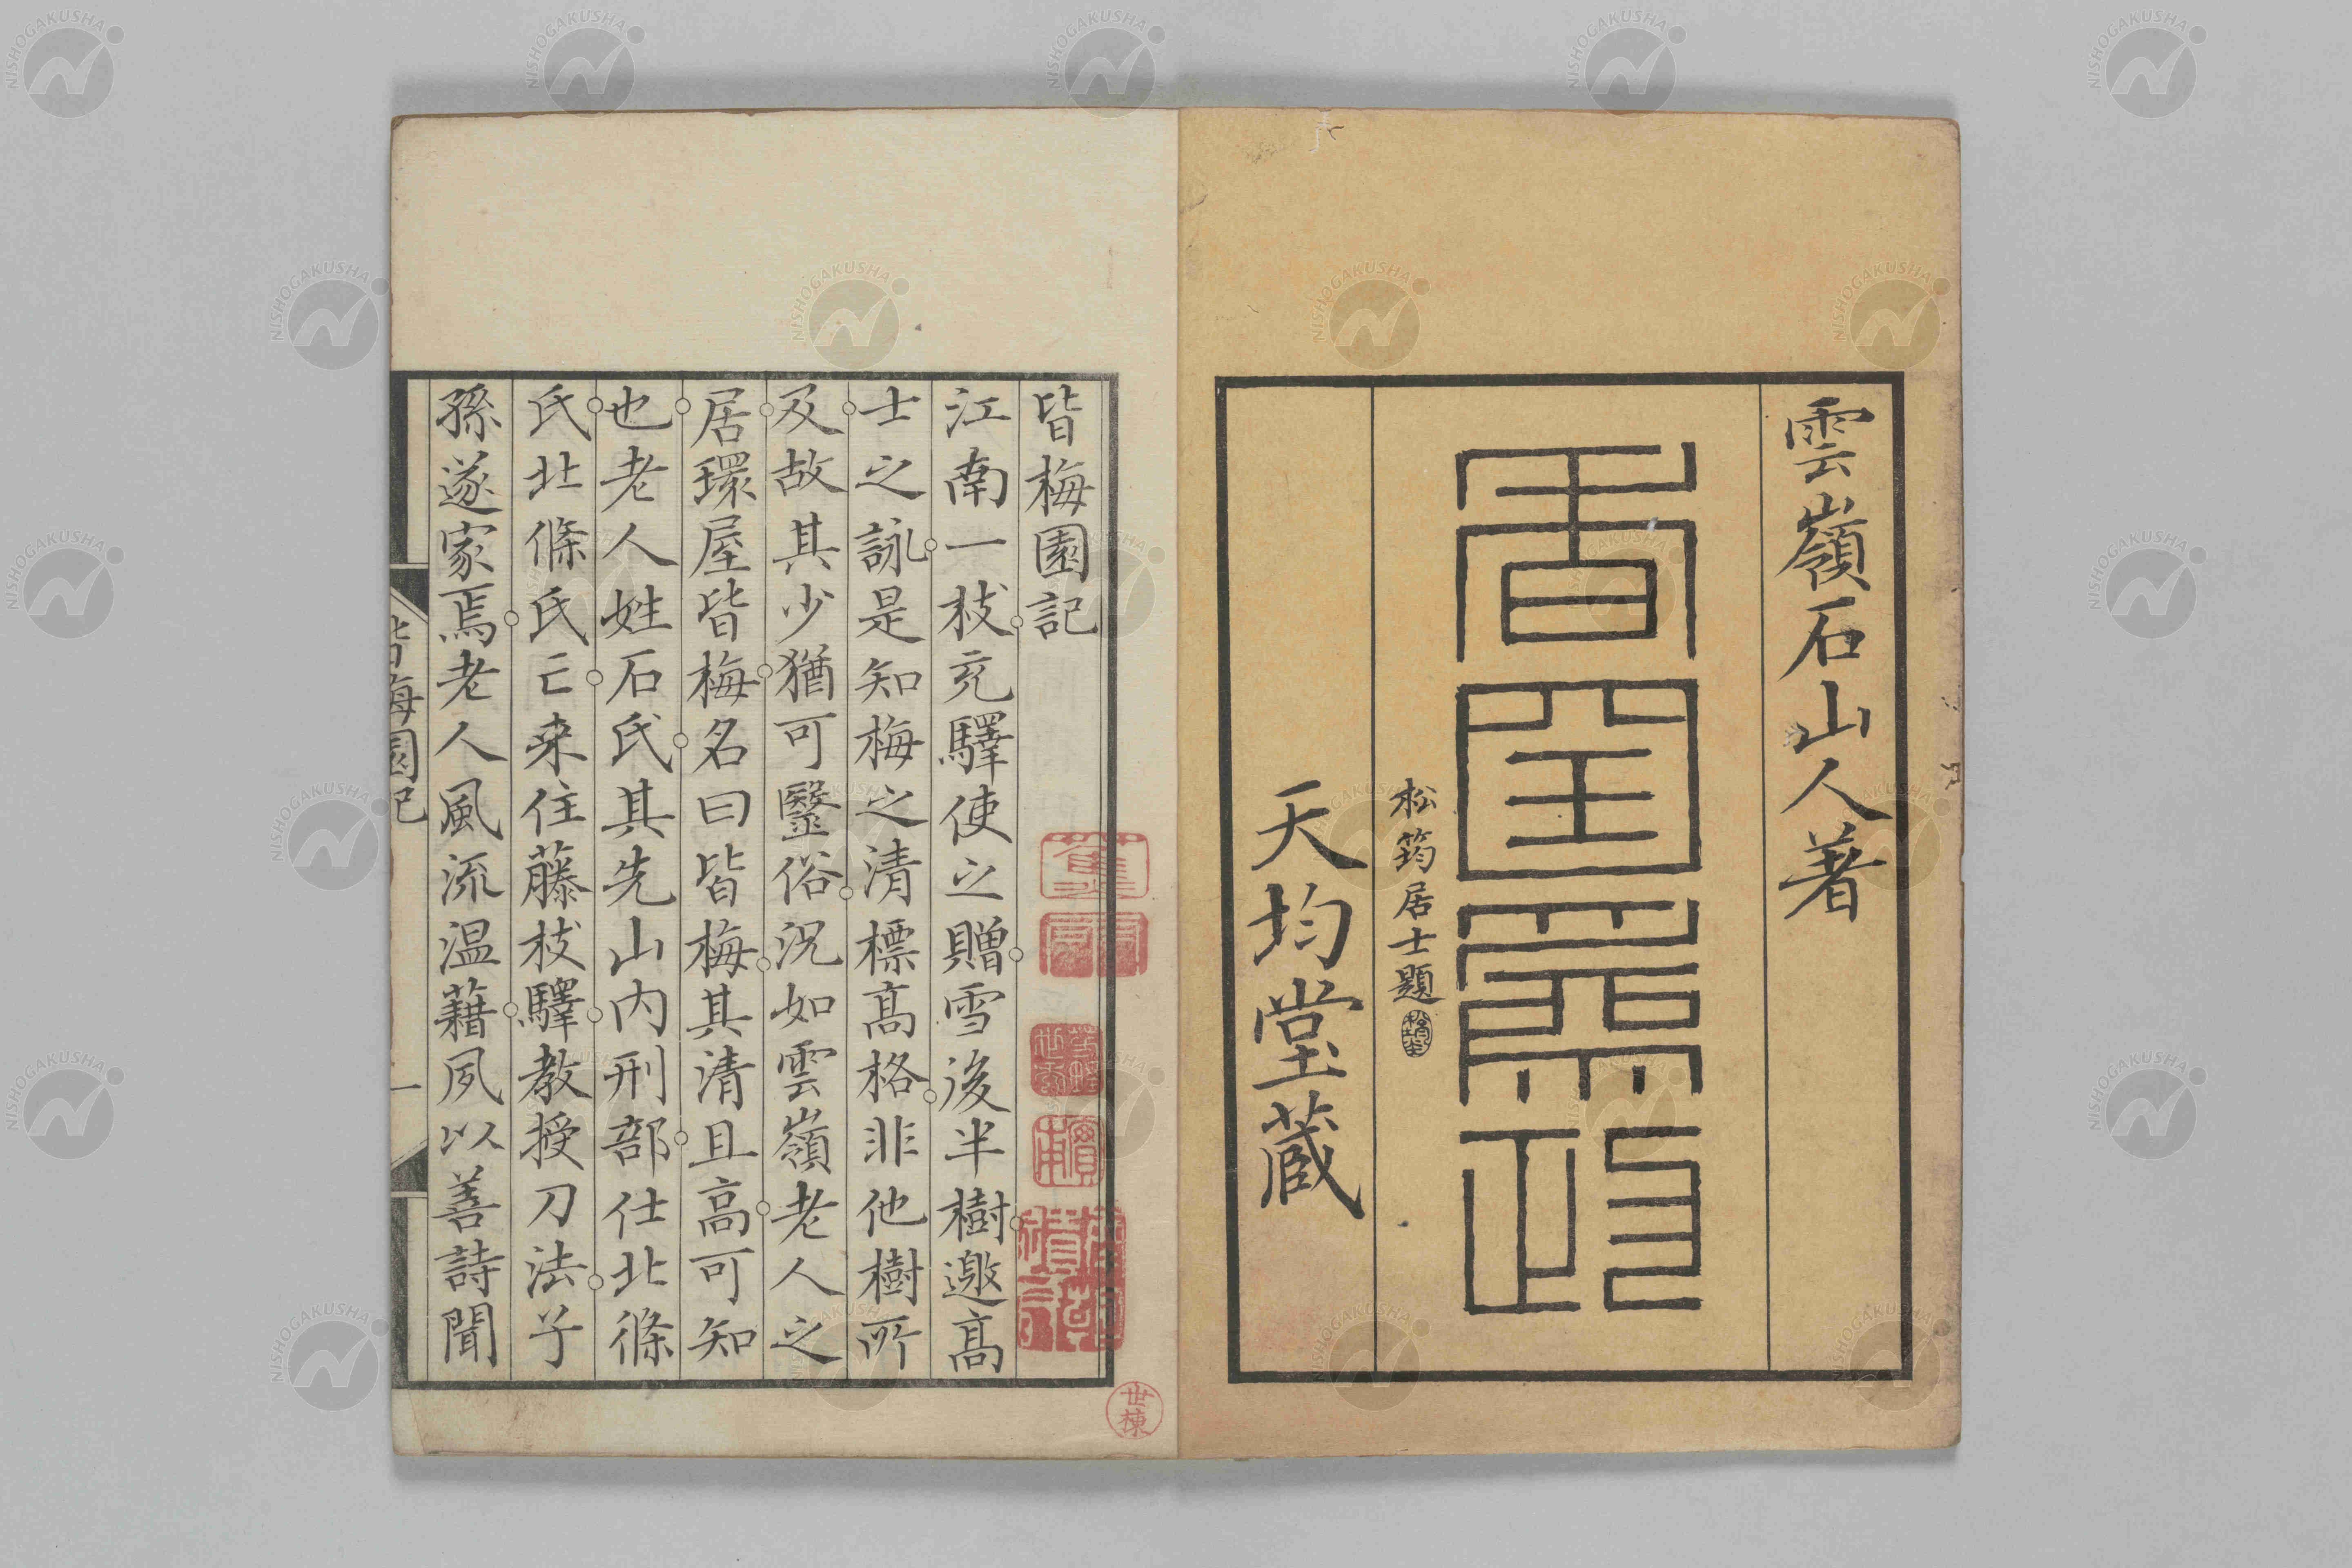 雲嶺石山人著
松筠居士題
天均堂蔵
皆梅園記
江南一枝充驛使之贈雪後半樹邀髙
士之詠是知梅之清標髙格非他樹所
及故其少猶可毉俗況如雲嶺老人之
居環屋皆梅名曰皆梅其清且高可知
也老人姓石氏其先山内刑部仕北條
氏北條氏亡来住藤枝驛教授刀法子
孫遂家焉老人風流温藉夙以善詩聞
皆梅園記
一
世棟
NISHOGAKUSHA